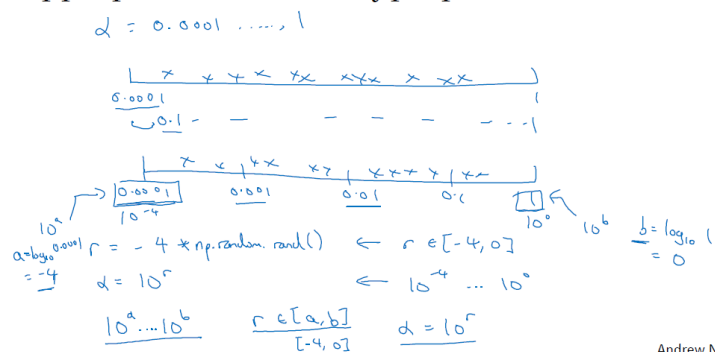 α = 0.0001 ....., 1
0.0001 1
0.1 - - - - - - - - 1
0.0001 0.001 0.01 0.1 1
10^a 10^-4 10^0 10^b
a = log10 0.0001 r = - 4 * np.random.rand() ← r ∈ [-4, 0] b = log10 1
= -4 α = 10^r ← 10^-4 ... 10^0 = 0
10^a ... 10^b r ∈ [a, b] α = 10^r
[-4, 0]
Andrew N